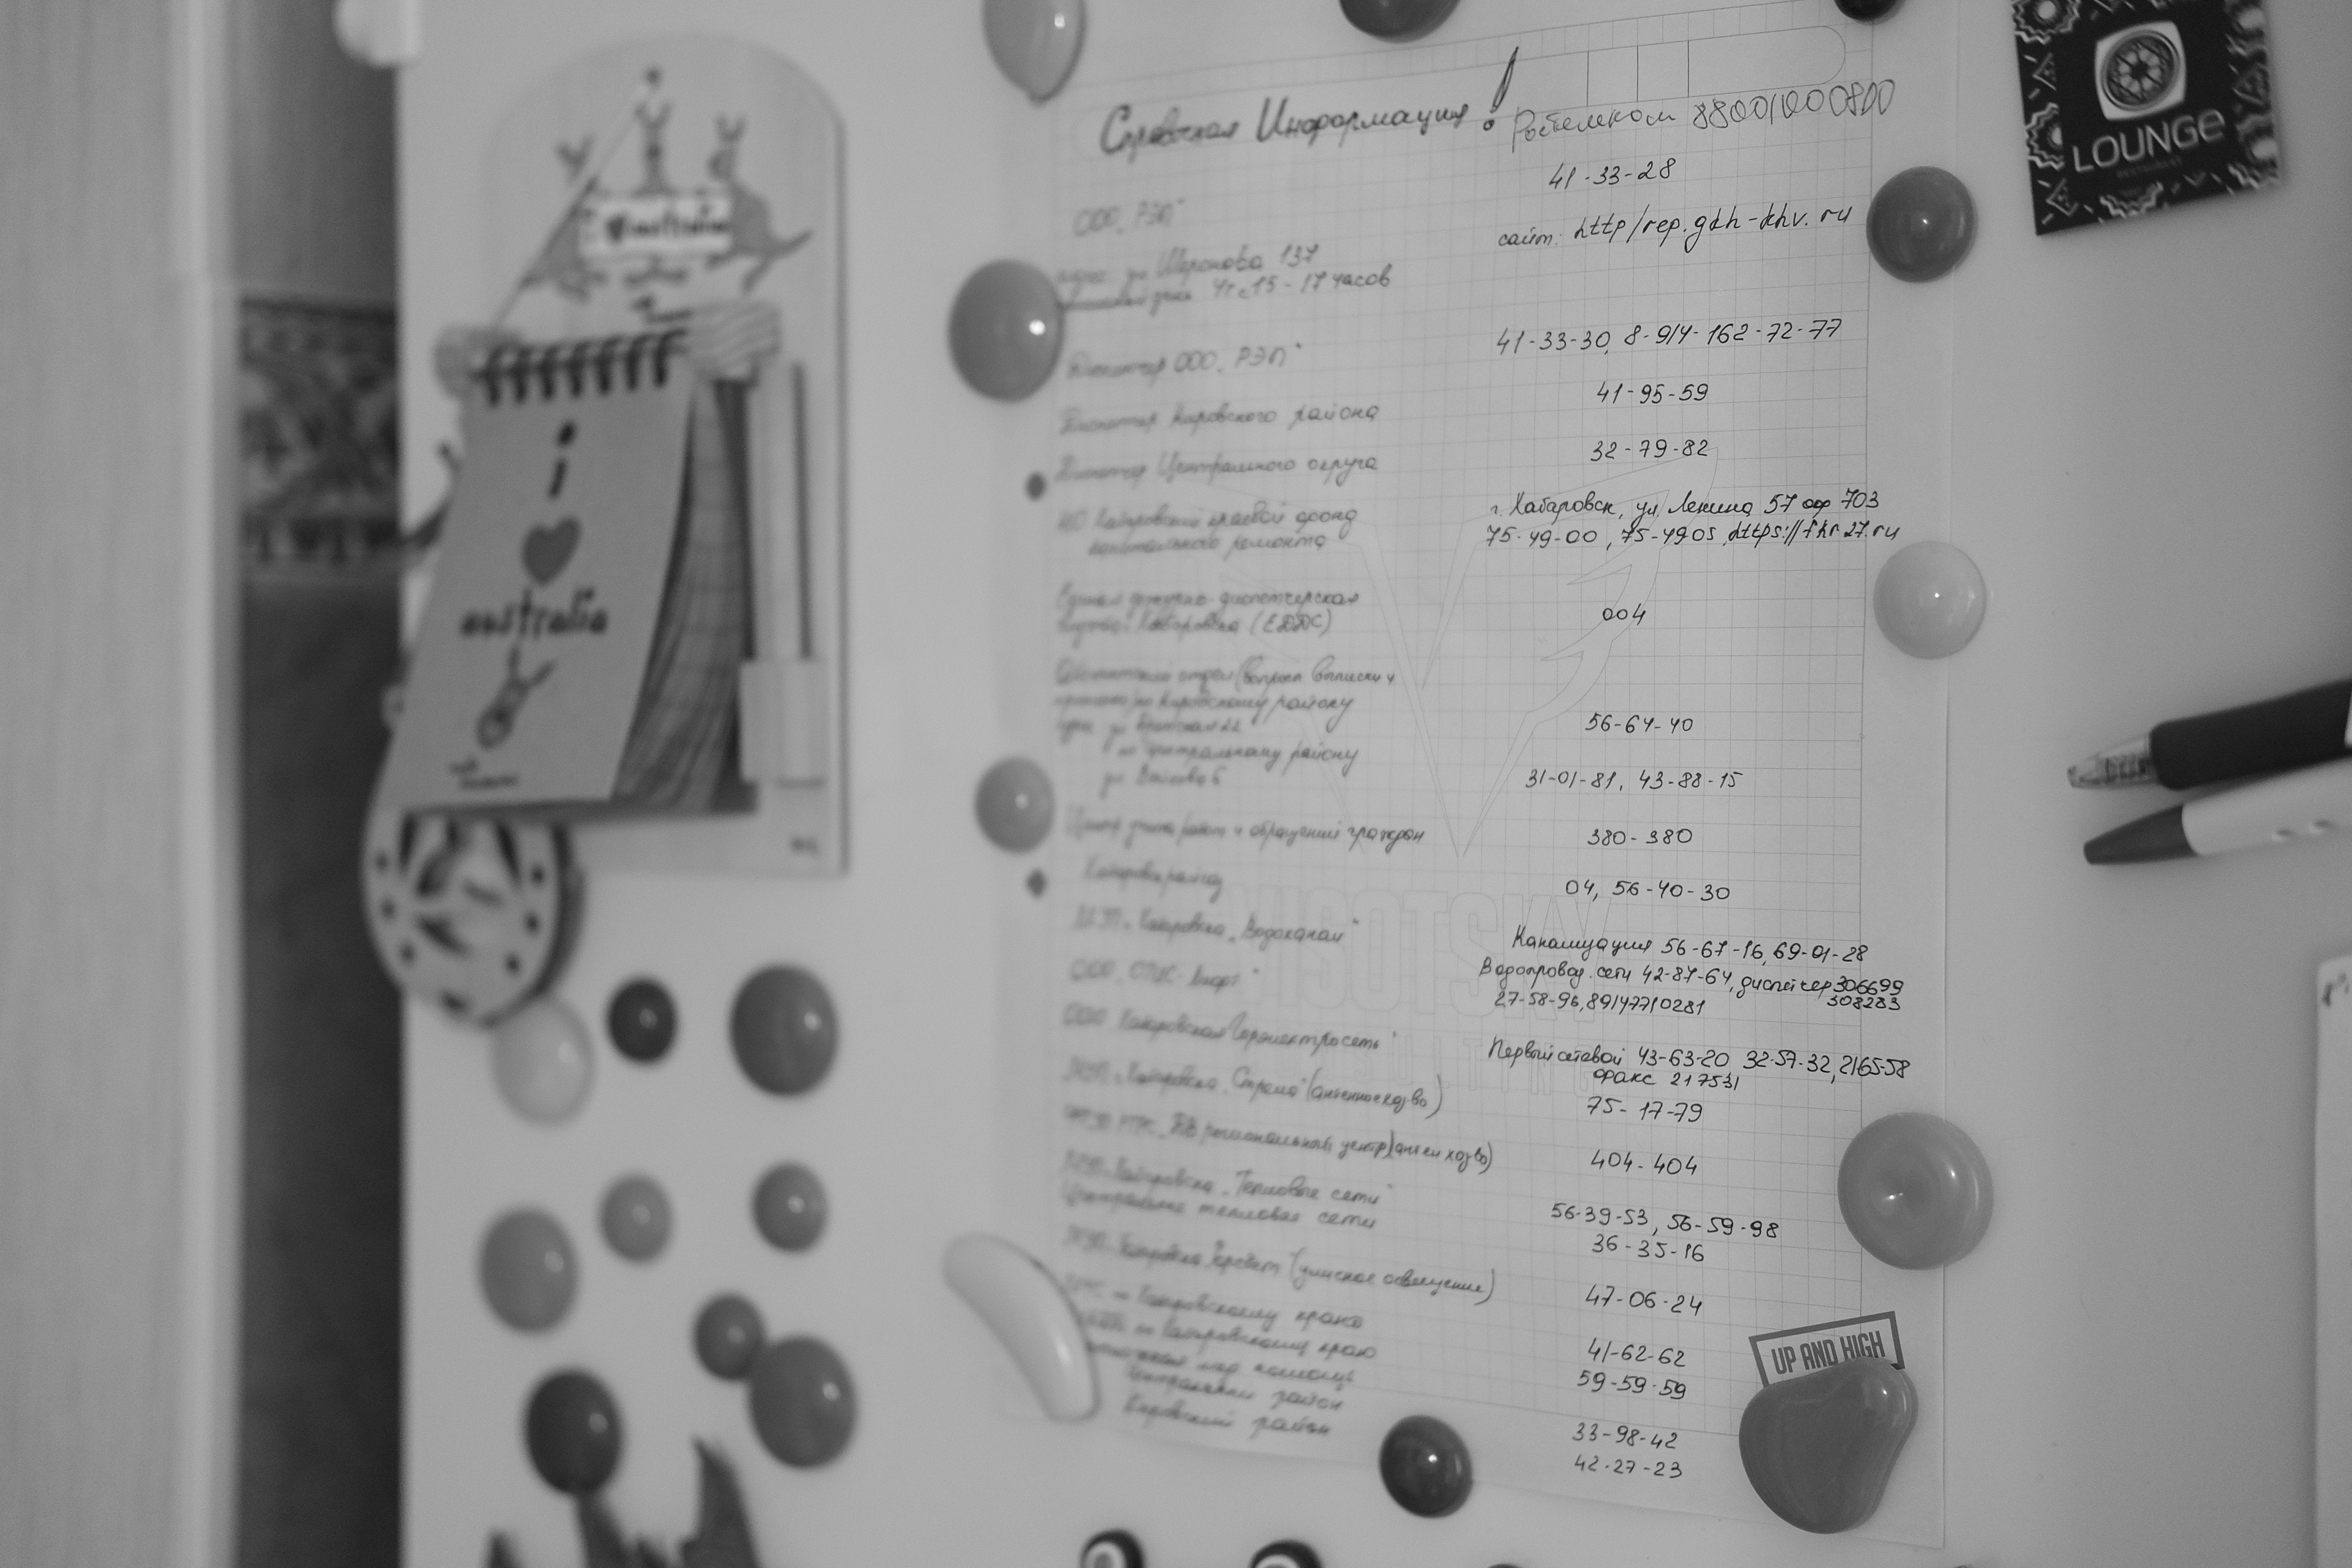 australia
i
australia
Справочная Информация!
Ростелеком 88001000800
ООО "РЭП" 41-33-28
ул Шеронова 137 сайт: http/rep.gkh-khv.ru
Чт с 15-17 часов
Диспетчер ООО "РЭП" 41-33-30, 8-914-162-72-77
Диспетчер Кировского района 41-95-59
Диспетчер Центрального округа 32-79-82
НО Хабаровский краевой фонд г. Хабаровск, ул. Ленина 57 оф 703
капитального ремонта 75-49-00, 75-4905, https://fkr27.ru
Единая дежурно-диспетчерская
Хабаровска (ЕДДС) 004
отдел (вопросы выписки и
по Кировскому району
ул 22 56-64-40
по Центральному району
ул 6 31-01-81, 43-88-15
Центр и обращений граждан 380-380
Хабаровсккрайгаз 04, 56-40-30
МУП г. Хабаровска "Водоканал" Канализация 56-67-16, 69-01-28
Водопровод. сети 42-87-64, диспетчер 306699
308283
ООО 27-58-96, 89147710281
ООО Хабаровская Горэлектросеть" Первый сетевой 43-63-20 32-57-32, 2165-58
факс 217531
МУП г. Хабаровска (антенное хоз-во) 75-17-79
региональный центр (антен хоз-во) 404-404
МУП г. Хабаровска "Тепловые сети" 56-39-53, 56-59-98
Центральные тепловые сети 36-35-16
МУП г. Хабаровска Горсвет" (уличное освещение) 47-06-24
по Хабаровскому краю 41-62-62
по Хабаровскому краю 59-59-59
Центральный район 33-98-42
Кировский район 42-27-23
LOUNGE
RESTAURANT
UP AND HIGH